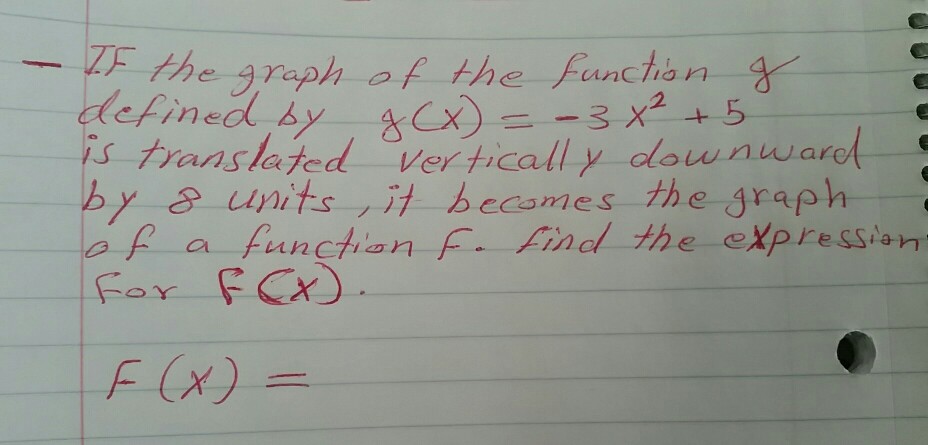 - IF the graph of the function g
defined by g(x) = -3x² + 5
is translated vertically downward
by 8 units, it becomes the graph
of a function f. find the expression
For F(x).
F(x) =